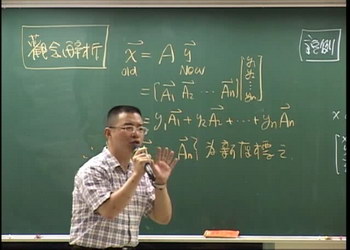 觀念解析
x⃗ = A y⃗
old New
= [A⃗₁ A⃗₂ ⋯ A⃗n] [y₁ y₂ ⋮ yn]
= y₁A⃗₁ + y₂A⃗₂ + ⋯ + ynA⃗n
A⃗n} 為新座標之